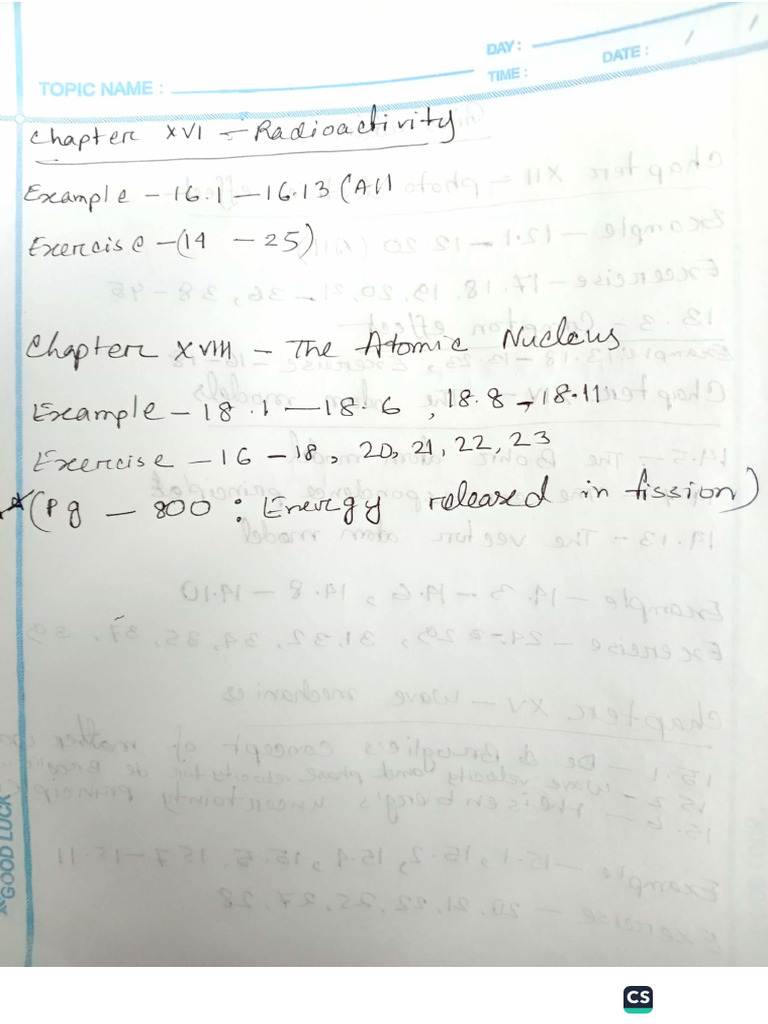 DAY :
DATE : / /
TIME :
TOPIC NAME :
Chapter XVI - Radioactivity
Example - 16.1 - 16.13 (All
Exercise - (14 - 25)
Chapter XVIII - The Atomic Nucleus
Example - 18.1 - 18.6, 18.8 - 18.11
Exercise - 16 - 18, 20, 21, 22, 23
(Pg - 800 : Energy released in fission)
GOOD LUCK
CS